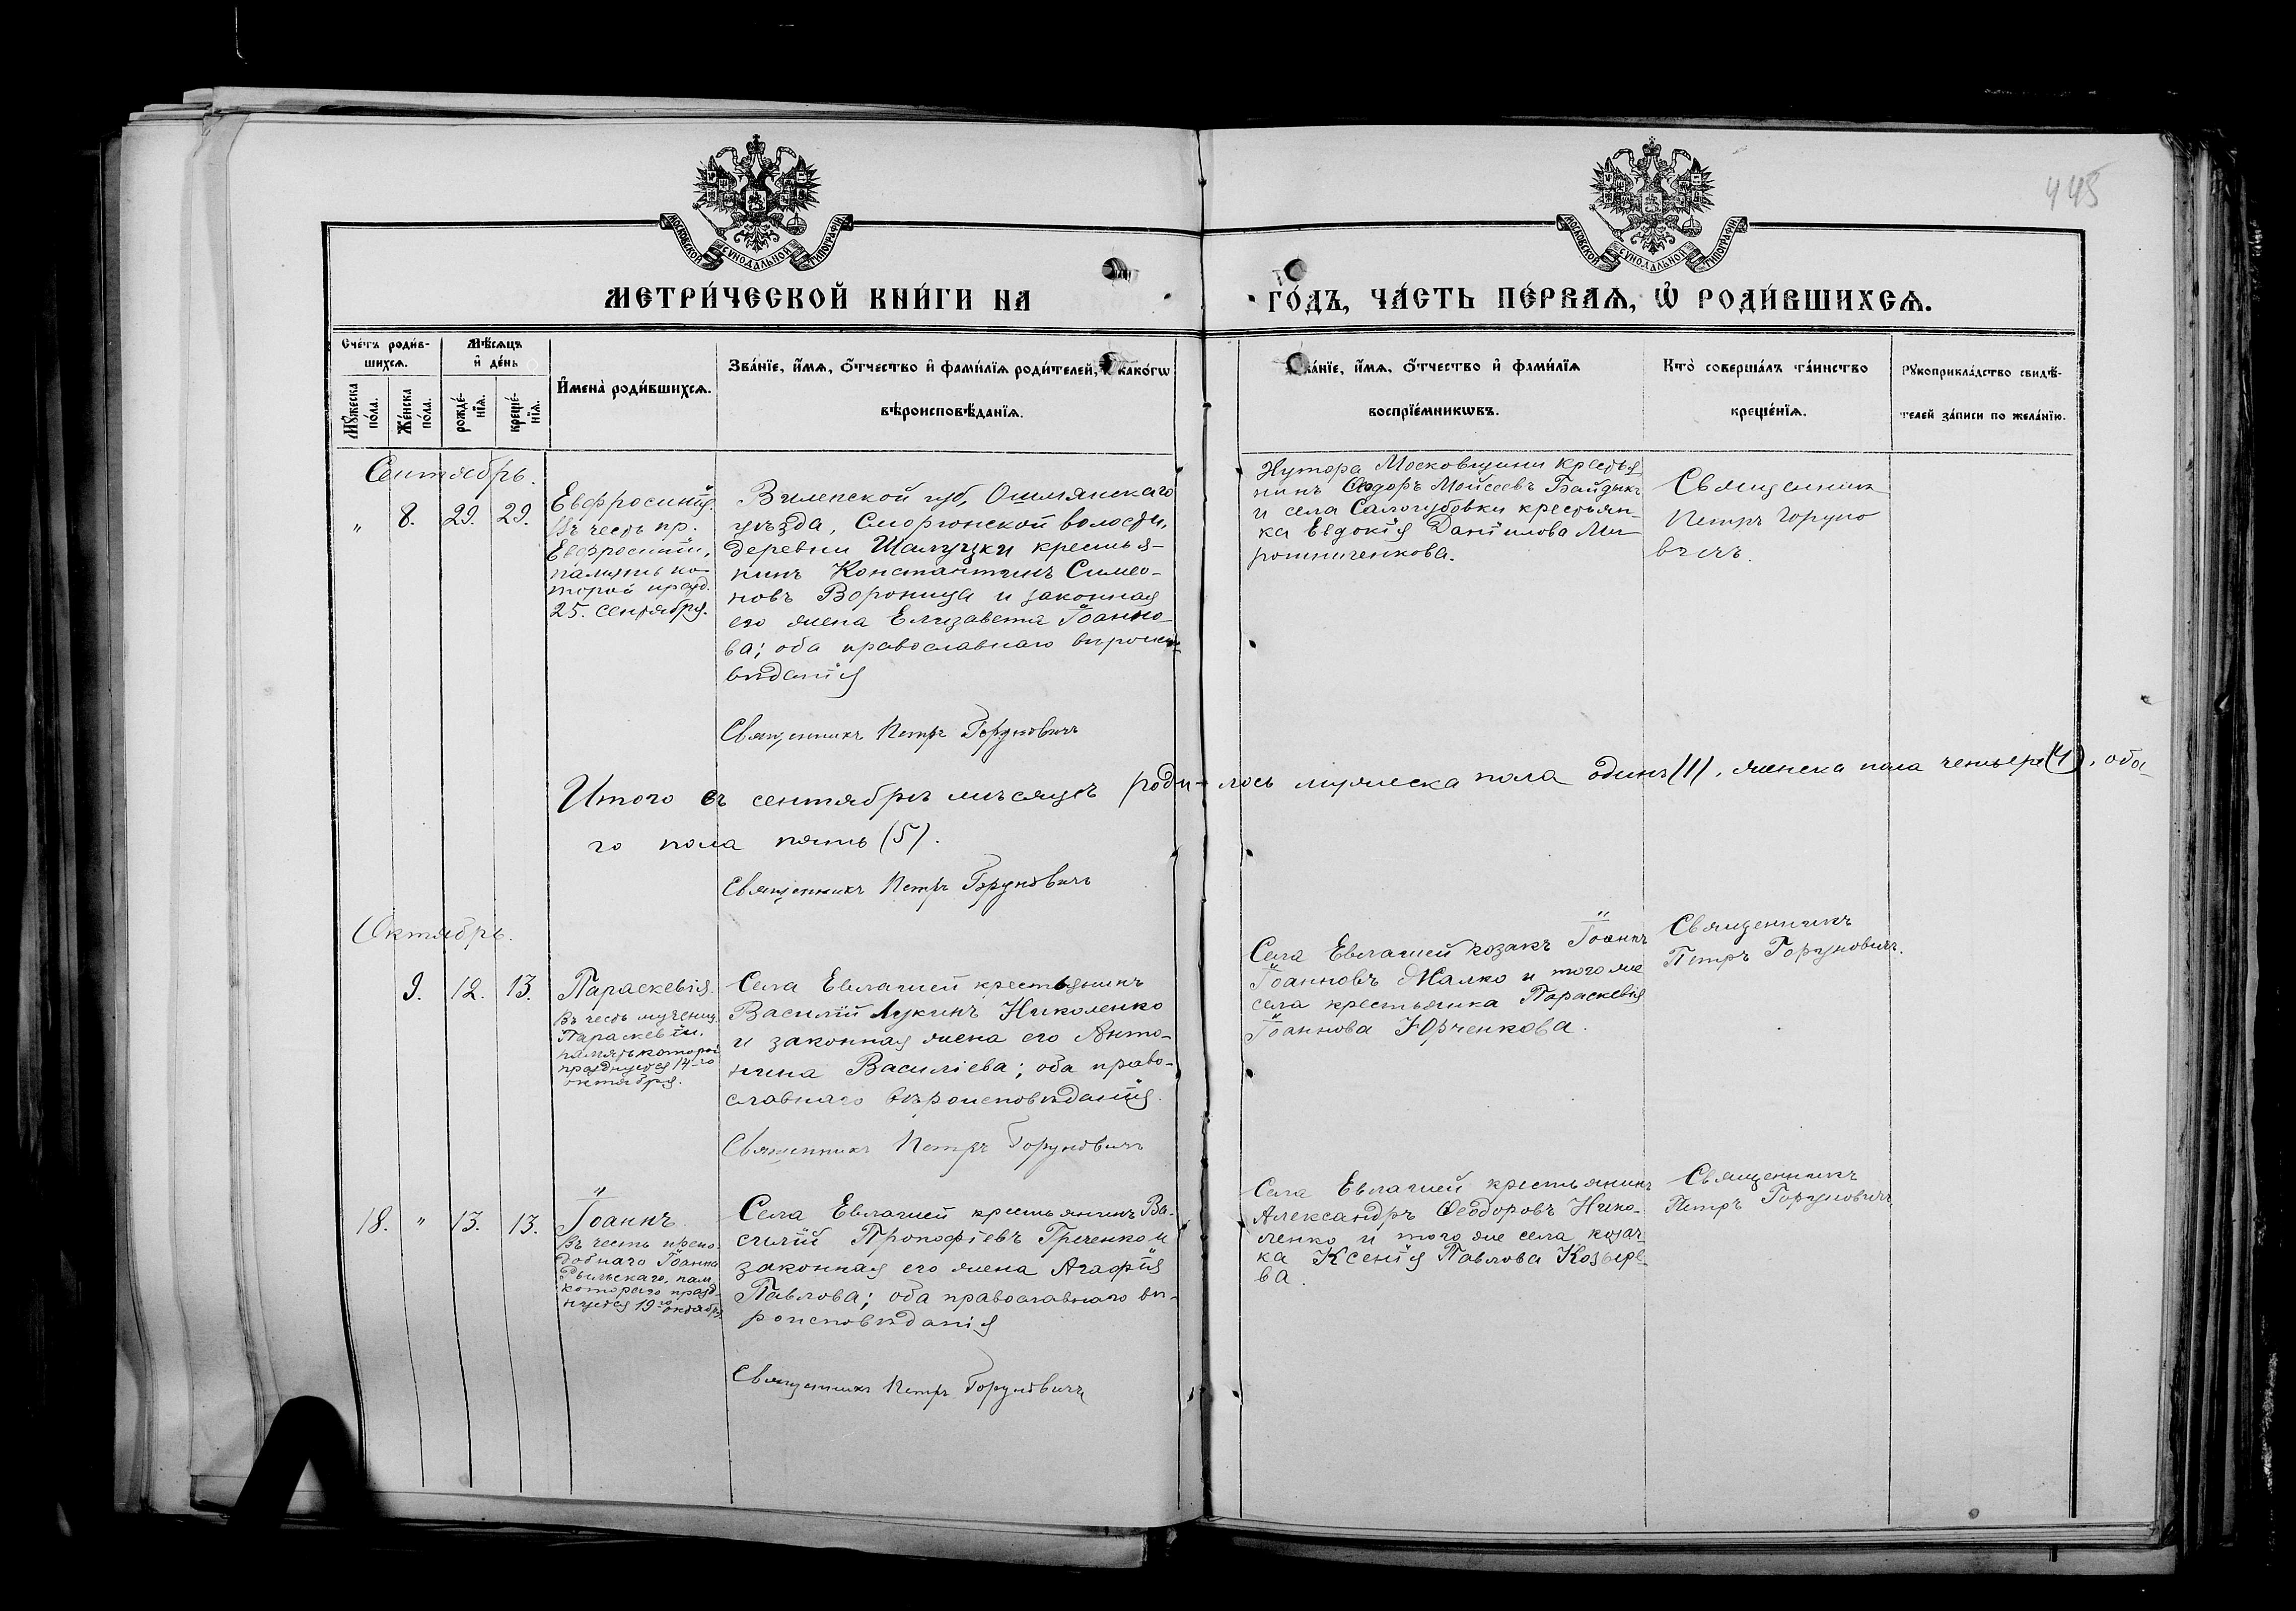 445
МОСКОВСКОЙ СУНОДАЛЬНОЙ ТИПОГРАФІИ
МОСКОВСКОЙ СУНОДАЛЬНОЙ ТИПОГРАФІИ
МЕТРИ́ЧЕСКОЙ КНИ́ГИ НА ГО́ДЪ, ЧА́СТЬ ПЕ́РВАѦ, Ѡ҆ РОДИ́ВШИХСѦ.
Сче́тъ роди́в-
шихсѧ.
Мꙋ́жеска по́ла.
Же́нска по́ла.
Мѣ́сѧцъ
и҆ де́нь
рожде́-нїѧ.
креще́-нїѧ.
И҆мена̀ роди́вшихсѧ.
Зва́нїе, и҆́мѧ, ѻ҆́тчество и҆ фами́лїѧ роди́телей, и҆ како́гѡ
вѣроисповѣ́данїѧ.
Зва́нїе, и҆́мѧ, ѻ҆́тчество и҆ фами́лїѧ
воспрїе́мникѡвъ.
Кто̀ соверша́лъ та́инство
креще́нїѧ.
Рꙋкоприкла́дство свидѣ́-
телей за́писи по жела́нїю.
Сентябрь.
" 8. 29. 29.
Евфросинія.
Въ честь пр.
Евфросиніи,
память ко-
торой празд.
25. сентября.
Виленской губ, Ошмянскаго
уѣзда, Сморгонской волости,
деревни Шалудзки крестья-
нинъ Константинъ Симео-
новъ Вороница и законная
его жена Елизавета Іоанно-
ва; оба православнаго вѣроиспо-
вѣданія
Хутора Московщини крестья
нинъ Сидоръ Мойсеевъ Байдыкъ
и села Салогубовки крестьян-
ка Евдокія Даніилова Ми-
рошниченкова.
Священник
Петръ Горуно
вичъ.
Священникъ Петръ Горуновичъ
Итого въ сентябрѣ мѣсяцѣ роди-лось мужеска пола одинъ (1), женска пола четыре (4), обо-
го пола пять (5).
Священникъ Петръ Горуновичъ
Октябрь.
9. 12. 13.
Параскевія.
Въ честь мучениц.
Параскевіи,
память которой
празднуется 14-го
октября.
Села Евлашей крестьянинъ
Василій Лукинъ Николенко
и законная жена его Анто-
нина Василіева; оба право-
славнаго вѣроисповѣданія.
Села Евлашей козакъ Іоаннъ
Іоанновъ Малко и того же
села крестьянка Параскевія
Іоаннова Юрченкова.
Священникъ
Петръ Горуновичъ.
Священникъ Петръ Горуновичъ
18. " 13. 13.
Іоаннъ.
Въ честь препо-
добнаго Іоанна
Рыльскаго, пам.
котораго празд-
нуется 19го октября
Села Евлашей крестьянинъ Ва-
силій Прокофіевъ Греченко и
законная его жена Агафія
Павлова; оба православнаго вѣ-
роисповѣданія
Села Евлашей крестьянинъ
Александръ Ѳеодоровъ Нико-
ленко и того же села козач-
ка Ксенія Павлова Козыре-
ва.
Священникъ
Петръ Горуновичъ
Священникъ Петръ Горуновичъ